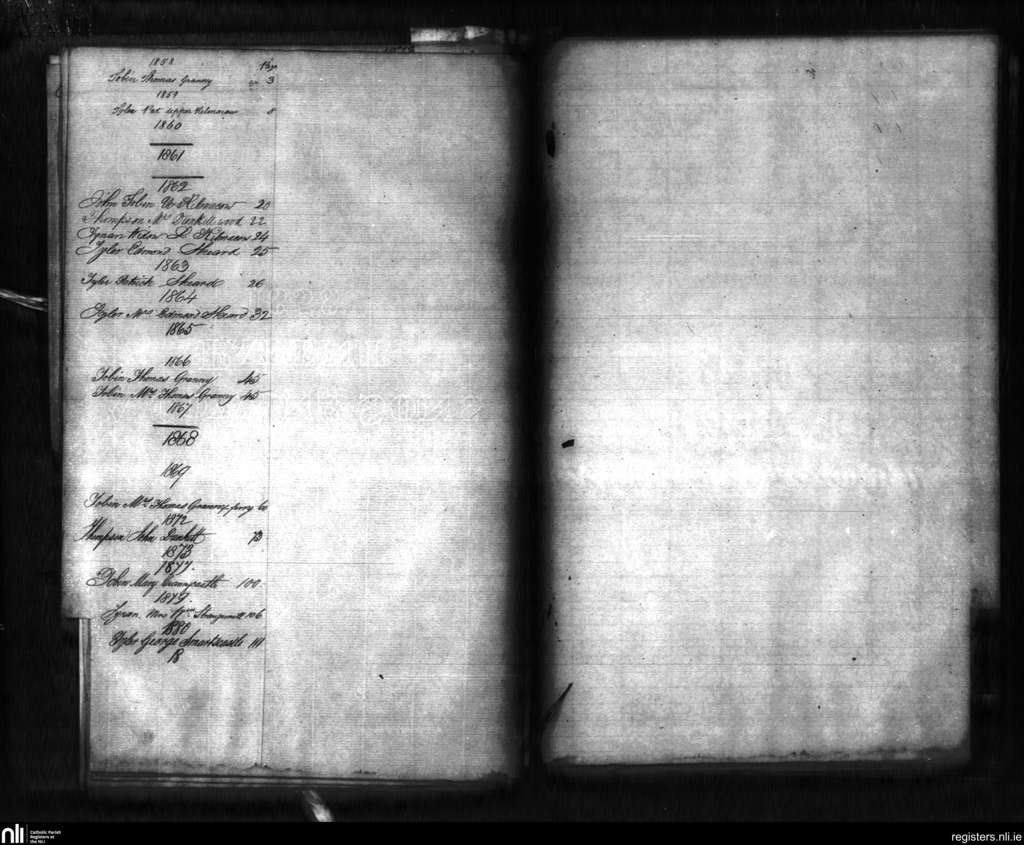 1858
Page
Tobin Thomas Granny 3
1859
Tyler Pat upper Kilmacow 8
1860
1861
1862
John Tobin U Kilmacow 20
Thompson Mrs Dunkitt wood 22
Tynan Widow L Kilmacow 24
Tyler Edmond Skeard 25
1863
Tyler Patrick Skeard 26
1864
Tyler Mrs Edmond Skeard 32
1865
1866
Tobin Thomas Granny 45
Tobin Mrs Thomas Granny 45
1867
1868
1869
Tobin Mrs Thomas Granny ferry 60
1872
Thompson John Dunkitt 73
1873
1877.
Tobin Mary 100
1879.
Tynan Mrs Wm 106
1880
Tyler George Smartscastle 111
18
nli
Catholic Parish
Registers at
the NLI
registers.nli.ie